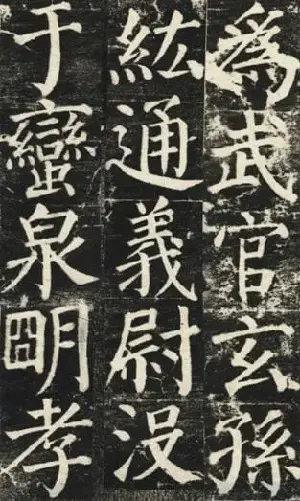 為武官玄孫
紘通義尉没
于蠻泉明孝